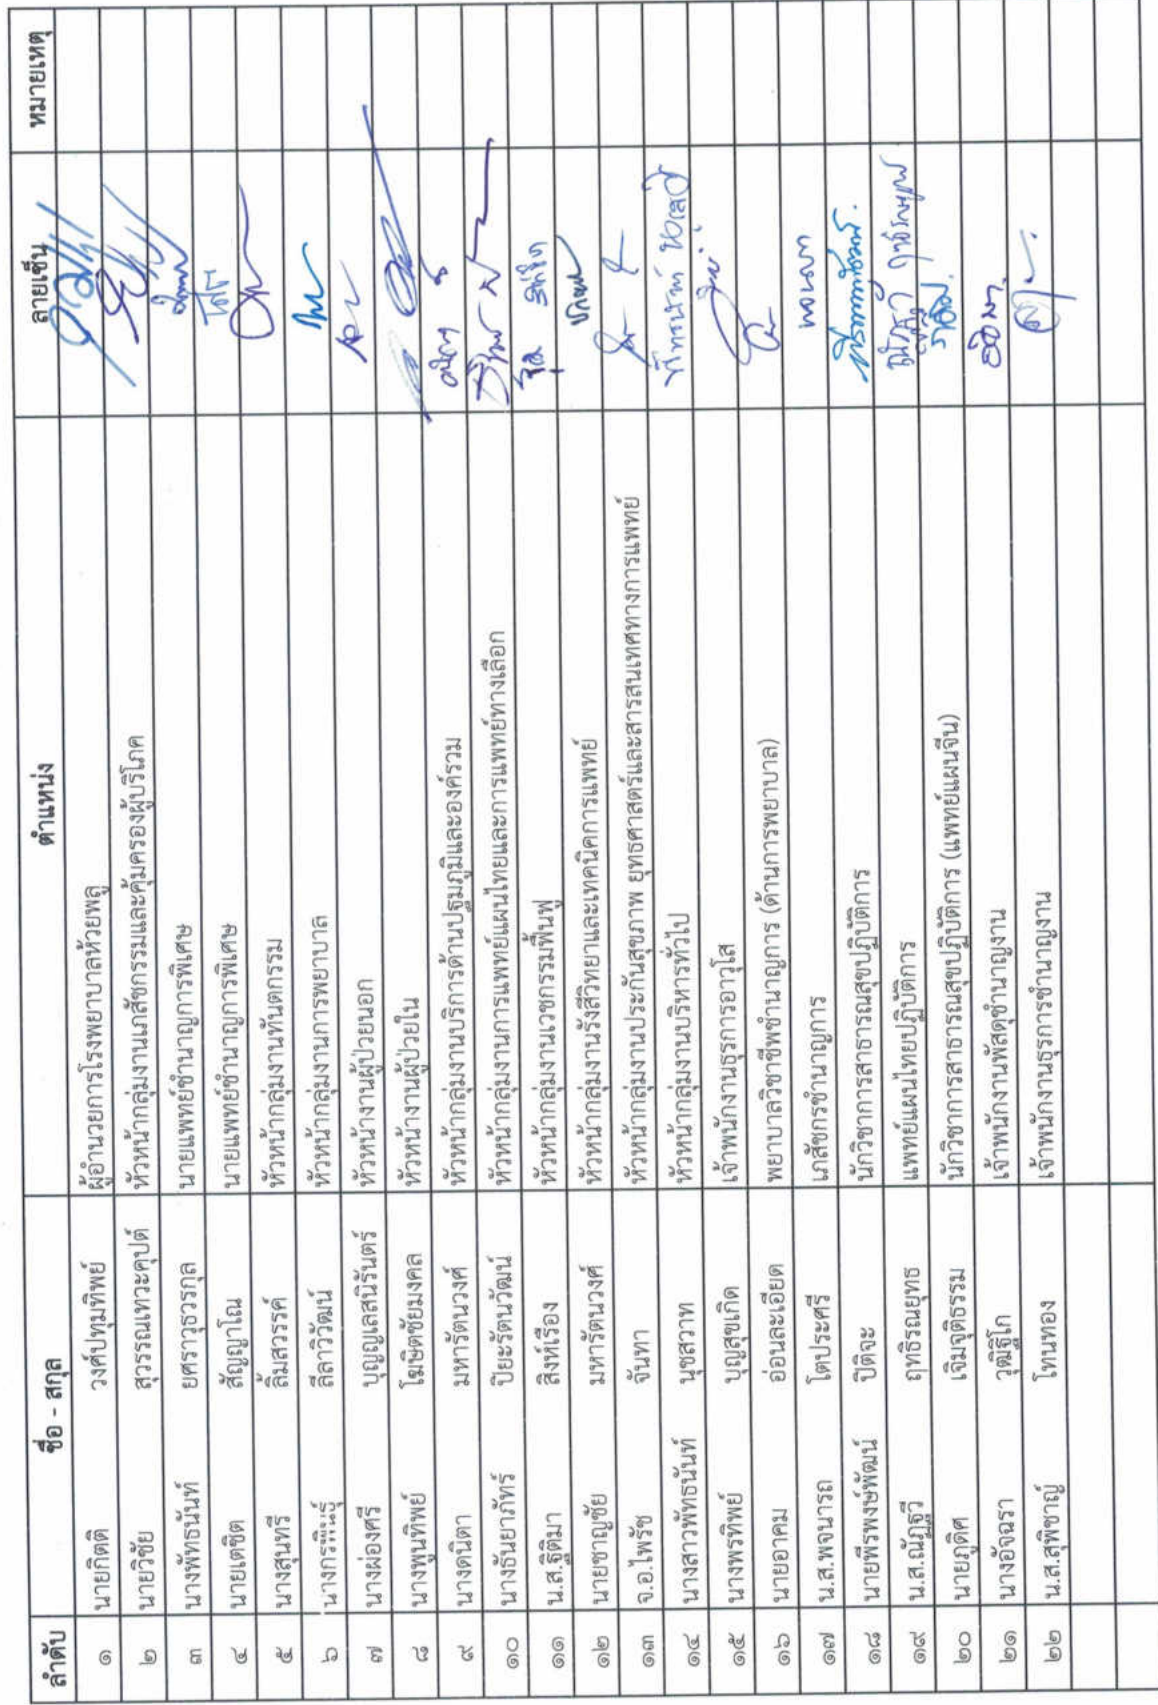 ลำดับ ชื่อ - สกุล ตำแหน่ง ลายเซ็น หมายเหตุ
๑ นายกิตติ วงศ์ปทุมทิพย์ ผู้อำนวยการโรงพยาบาลห้วยพลู
๒ นายวิชัย สุวรรณเทวะคุปต์ หัวหน้ากลุ่มงานเภสัชกรรมและคุ้มครองผู้บริโภค
๓ นางพัทธนันท์ ยศราวุธวรกุล นายแพทย์ชำนาญการพิเศษ
๔ นายเตชิต สัญญาโณ นายแพทย์ชำนาญการพิเศษ
๕ นางสุนทรี ลิ้มสวรรค์ หัวหน้ากลุ่มงานทันตกรรม
๖ ลีลาวิวัฒน์ หัวหน้ากลุ่มงานการพยาบาล
๗ นางผ่องศรี บุญญูเลสนิรันตร์ หัวหน้างานผู้ป่วยนอก
๘ นางพูนทิพย์ โฆษิตชัยมงคล หัวหน้างานผู้ป่วยใน
๙ นางดนิตา มหารัตนวงศ์ หัวหน้ากลุ่มงานบริการด้านปฐมภูมิและองค์รวม
๑๐ นางธันยาภัทร์ ปิยะรัตนวัฒน์ หัวหน้ากลุ่มงานการแพทย์แผนไทยและการแพทย์ทางเลือก
๑๑ น.ส.ฐิติมา สิงห์เรือง หัวหน้ากลุ่มงานเวชกรรมฟื้นฟู
๑๒ นายชาญชัย มหารัตนวงศ์ หัวหน้ากลุ่มงานรังสีวิทยาและเทคนิคการแพทย์
๑๓ จ.อ.ไพรัช จันทา หัวหน้ากลุ่มงานประกันสุขภาพ ยุทธศาสตร์และสารสนเทศทางการแพทย์
๑๔ นางสาวพัทธนันท์ นุชสวาท หัวหน้ากลุ่มงานบริหารทั่วไป
๑๕ นางพรทิพย์ บุญสุขเกิด เจ้าพนักงานธุรการอาวุโส
๑๖ นายอาคม อ่อนละเอียด พยาบาลวิชาชีพชำนาญการ (ด้านการพยาบาล)
๑๗ น.ส.พจนารถ โตประศรี เภสัชกรชำนาญการ
๑๘ นายพีรพงษ์พัฒน์ ปิติจะ นักวิชาการสาธารณสุขปฏิบัติการ
๑๙ น.ส.ณัฏฐวี ฤทธิรณยุทธ แพทย์แผนไทยปฏิบัติการ
๒๐ นายภูดิศ เจิมจุติธรรม นักวิชาการสาธารณสุขปฏิบัติการ (แพทย์แผนจีน)
๒๑ นางอัจฉรา วุฒิฐิโก เจ้าพนักงานพัสดุชำนาญงาน
๒๒ น.ส.สุพิชาญ์ โทนทอง เจ้าพนักงานธุรการชำนาญงาน